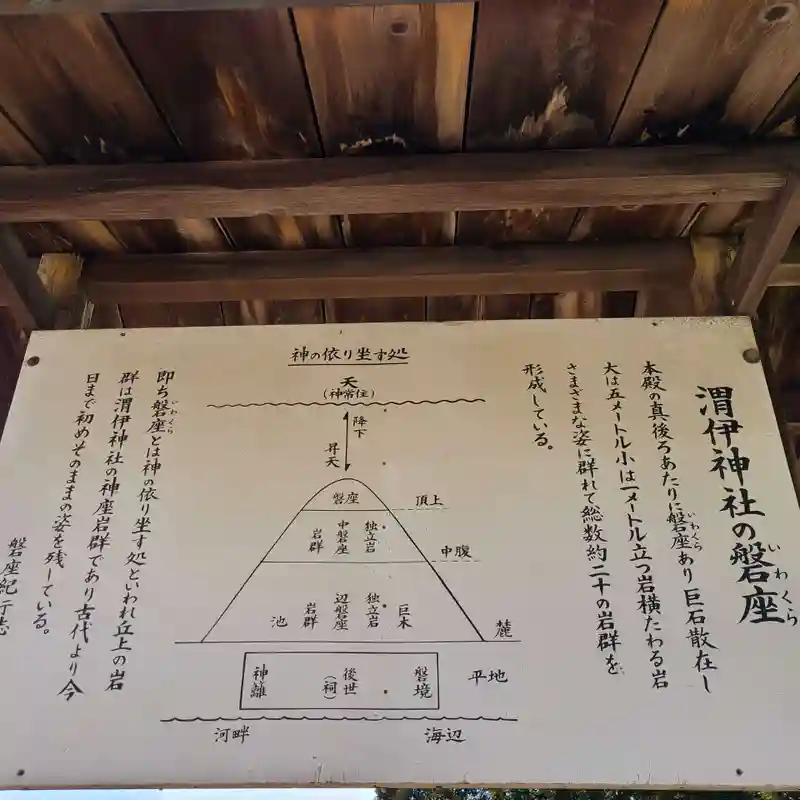 渭伊神社の磐座
いわくら
本殿の真後ろあたりに磐座あり巨石散在し
いわくら
大は五メートル小は一メートル立つ岩横たわる岩
さまざまな姿に群れて総数約二十の岩群を
形成している。
神の依り坐す処
天
(神常住)
降下
昇天
磐座
頂上
独立岩
中磐座
岩群
中腹
巨木
独立岩
辺磐座
岩群
池
麓
磐境
後世
(祠)
神籬
平地
河畔
海辺
即ち磐座とは神の依り坐す処といわれ丘上の岩
いわくら
群は渭伊神社の神座岩群であり古代より今
日まで初めそのままの姿を残している。
磐座紀行志